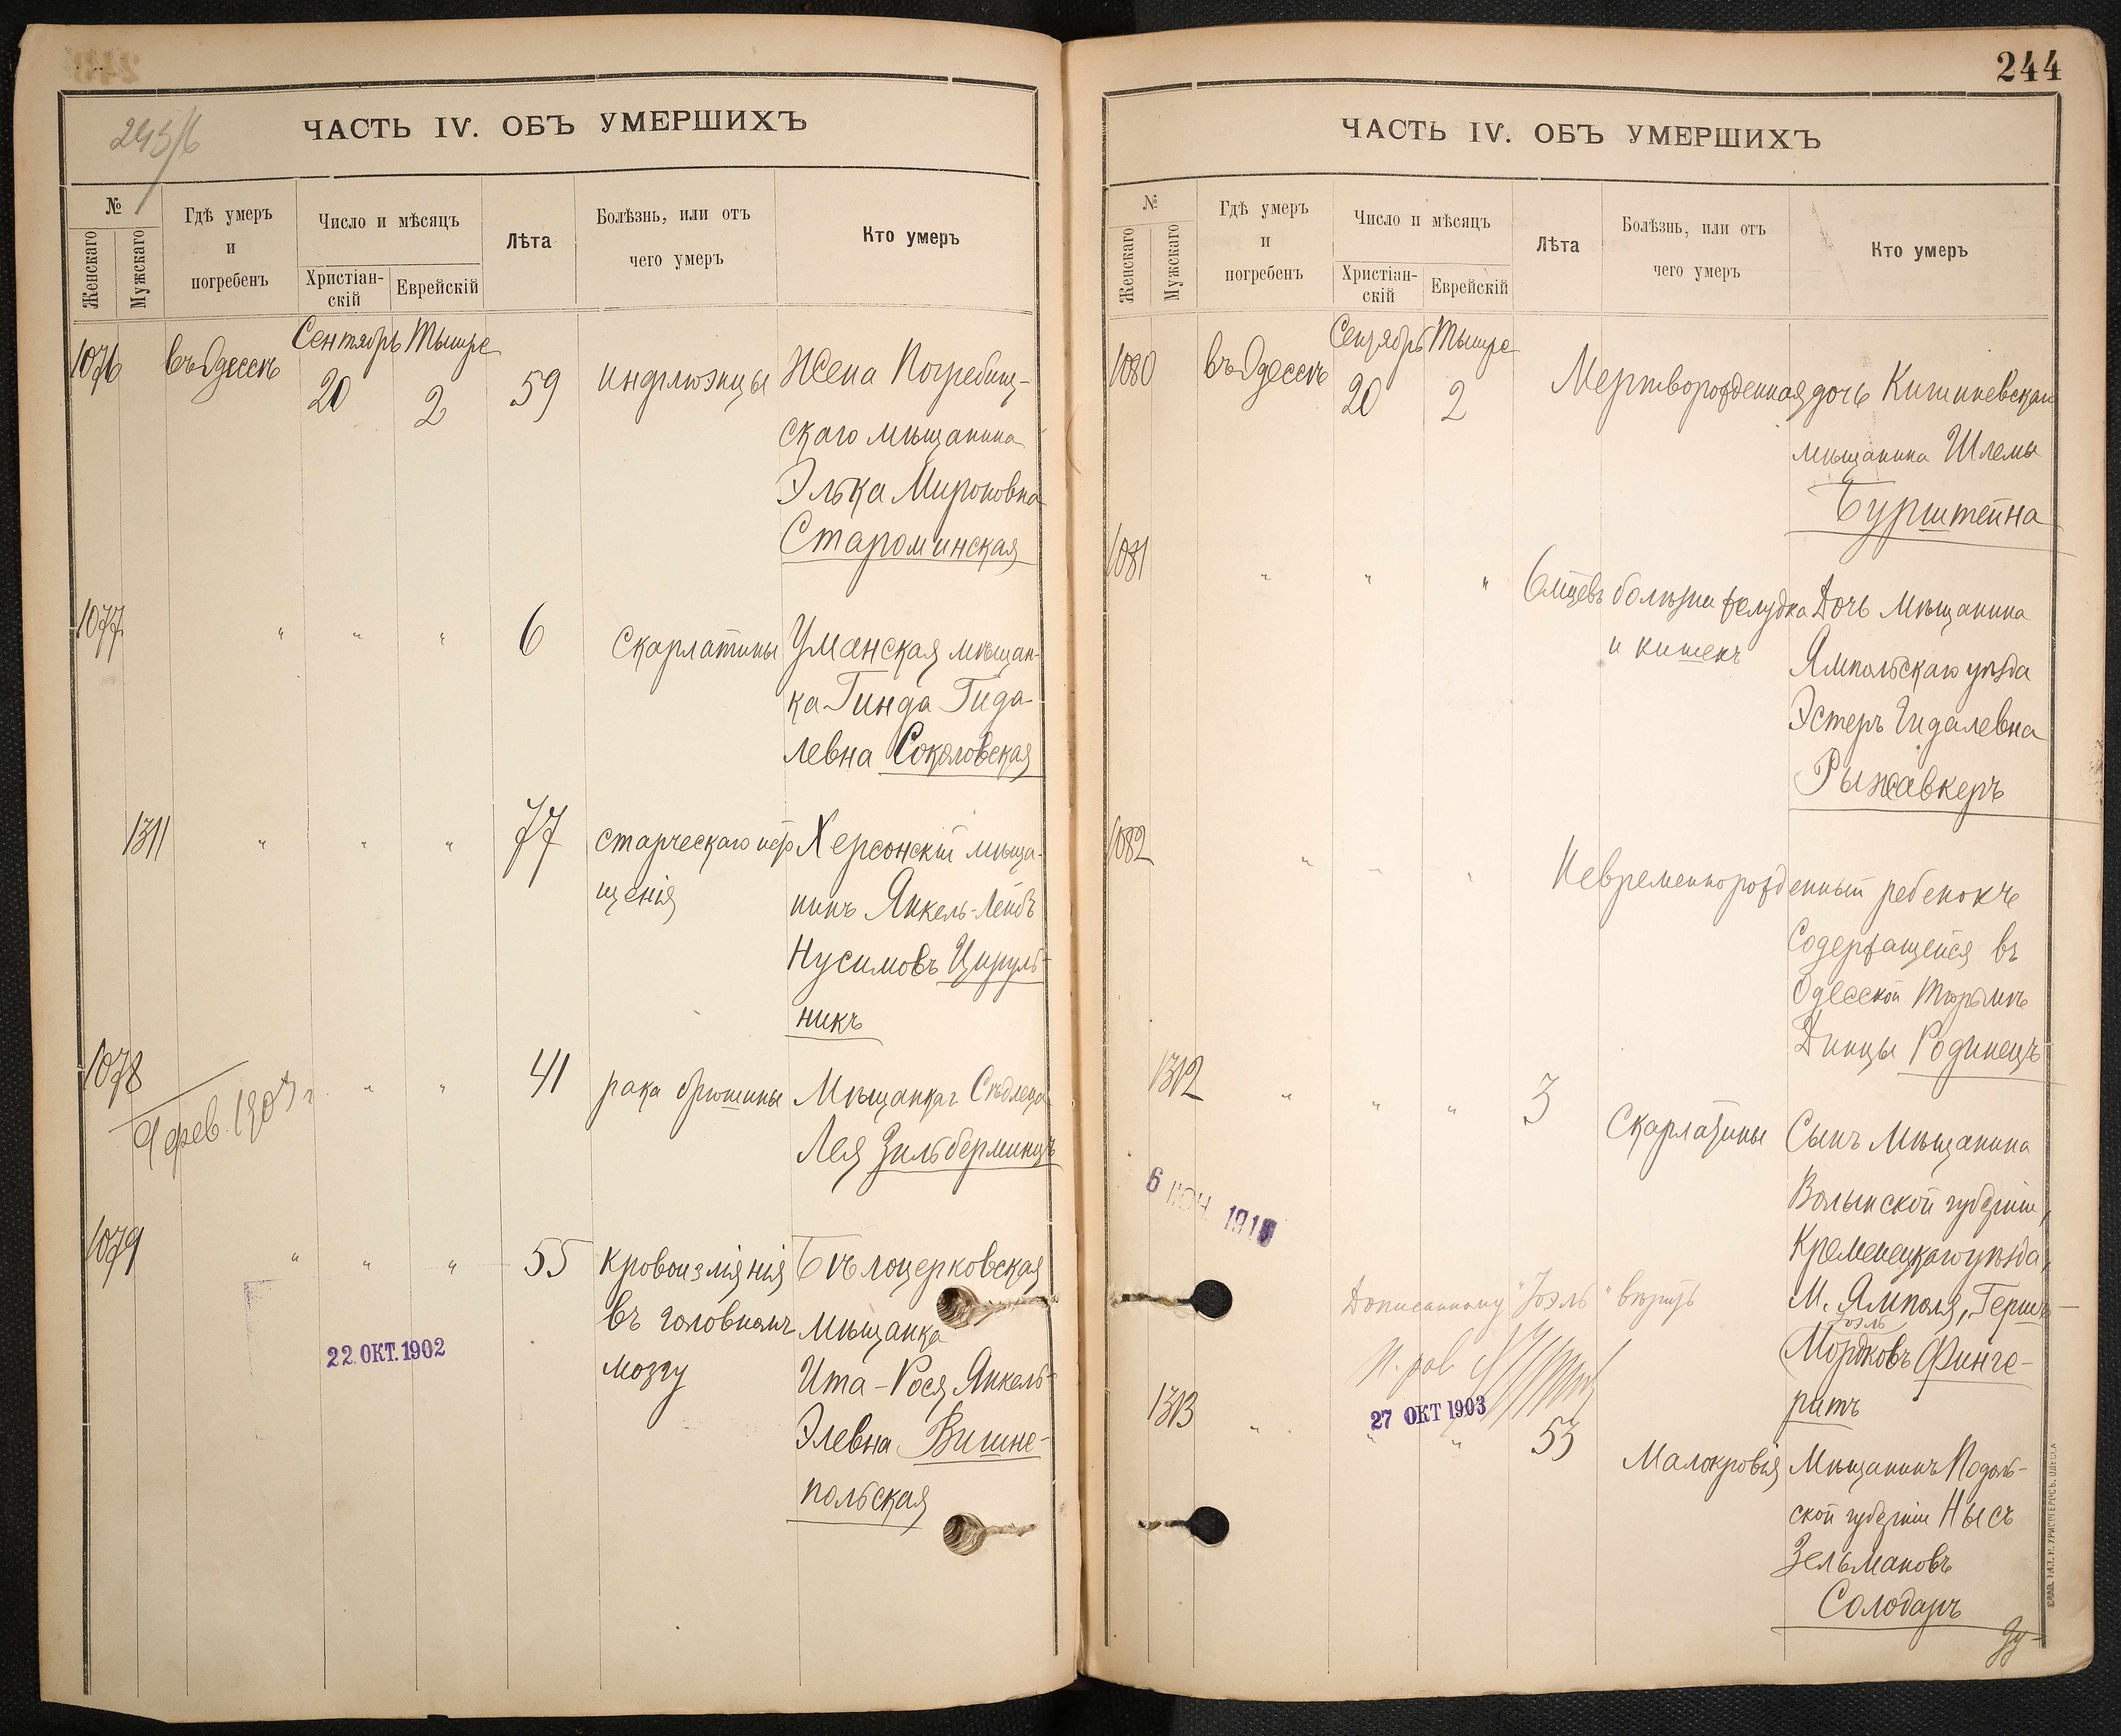 245/6
ЧАСТЬ IV. ОБЪ УМЕРШИХЪ
№
Женскаго
Мужскаго
Гдѣ умеръ
и
погребенъ
Число и мѣсяцъ
Христіан-
скій
Еврейскій
Лѣта
Болѣзнь, или отъ
чего умеръ
Кто умеръ
1076 въ Одессѣ Сентябрь 20 Тышре 2 59 инфлюэнцы Жена Погребищ-
скаго мѣщанина
Элька Мироновна
Староминская
1077 " " " 6 Скарлатины Уманская мѣщан-
ка Гинда Гида-
левна Соколовская
1311 " " " 77 старческаго исто Херсонскій мѣща-
щенія
нинъ Янкель-Лейбъ
Нусимовъ Цируль-
никъ
1078 " " 41 рака брюшины Мѣщанка г. Сѣдлеца
9 фев. 1903 г.
Лея Зильберминцъ
1079 " " " 55 кровоизліянія Бѣлоцерковская
въ головномъ мѣщанка
мозгу Ита-Рося Янкель-
Элевна Вишне-
польская
22 ОКТ. 1902
244
ЧАСТЬ IV. ОБЪ УМЕРШИХЪ
№
Женскаго
Мужскаго
Гдѣ умеръ
и
погребенъ
Число и мѣсяцъ
Христіан-
скій
Еврейскій
Лѣта
Болѣзнь, или отъ
чего умеръ
Кто умеръ
1080 въ Одессѣ Сентябрь 20 Тышре 2 Мертворожденная дочь Кишиневскаго
мѣщанина Шлемы
Бурштейна
1081 " " " 6 мцевъ болѣзни желудка Дочь мѣщанина
и кишекъ Ямпольскаго уѣзда
Эстеръ Гидалевна
Рыжавкеръ
1082 " " " Невременнорожденный ребенокъ
Содержащейся въ
Одесской тюрьмѣ
Динцы Родинецъ
1312 " " " 3 Скарлатины Сынъ мѣщанина
Волынской губерніи,
Кременецкаго уѣзда,
М. Ямполя, Гершъ-
Іоэль
Мордковъ Финге-
ритъ
6 ІЮН 191
Дописанному "Іоэль" вѣрить
27 ОКТ 1903
1313 " " " 53 Малокровія Мѣщанинъ Подоль-
ской губерніи Нысъ
Зельмановъ
Солодаръ